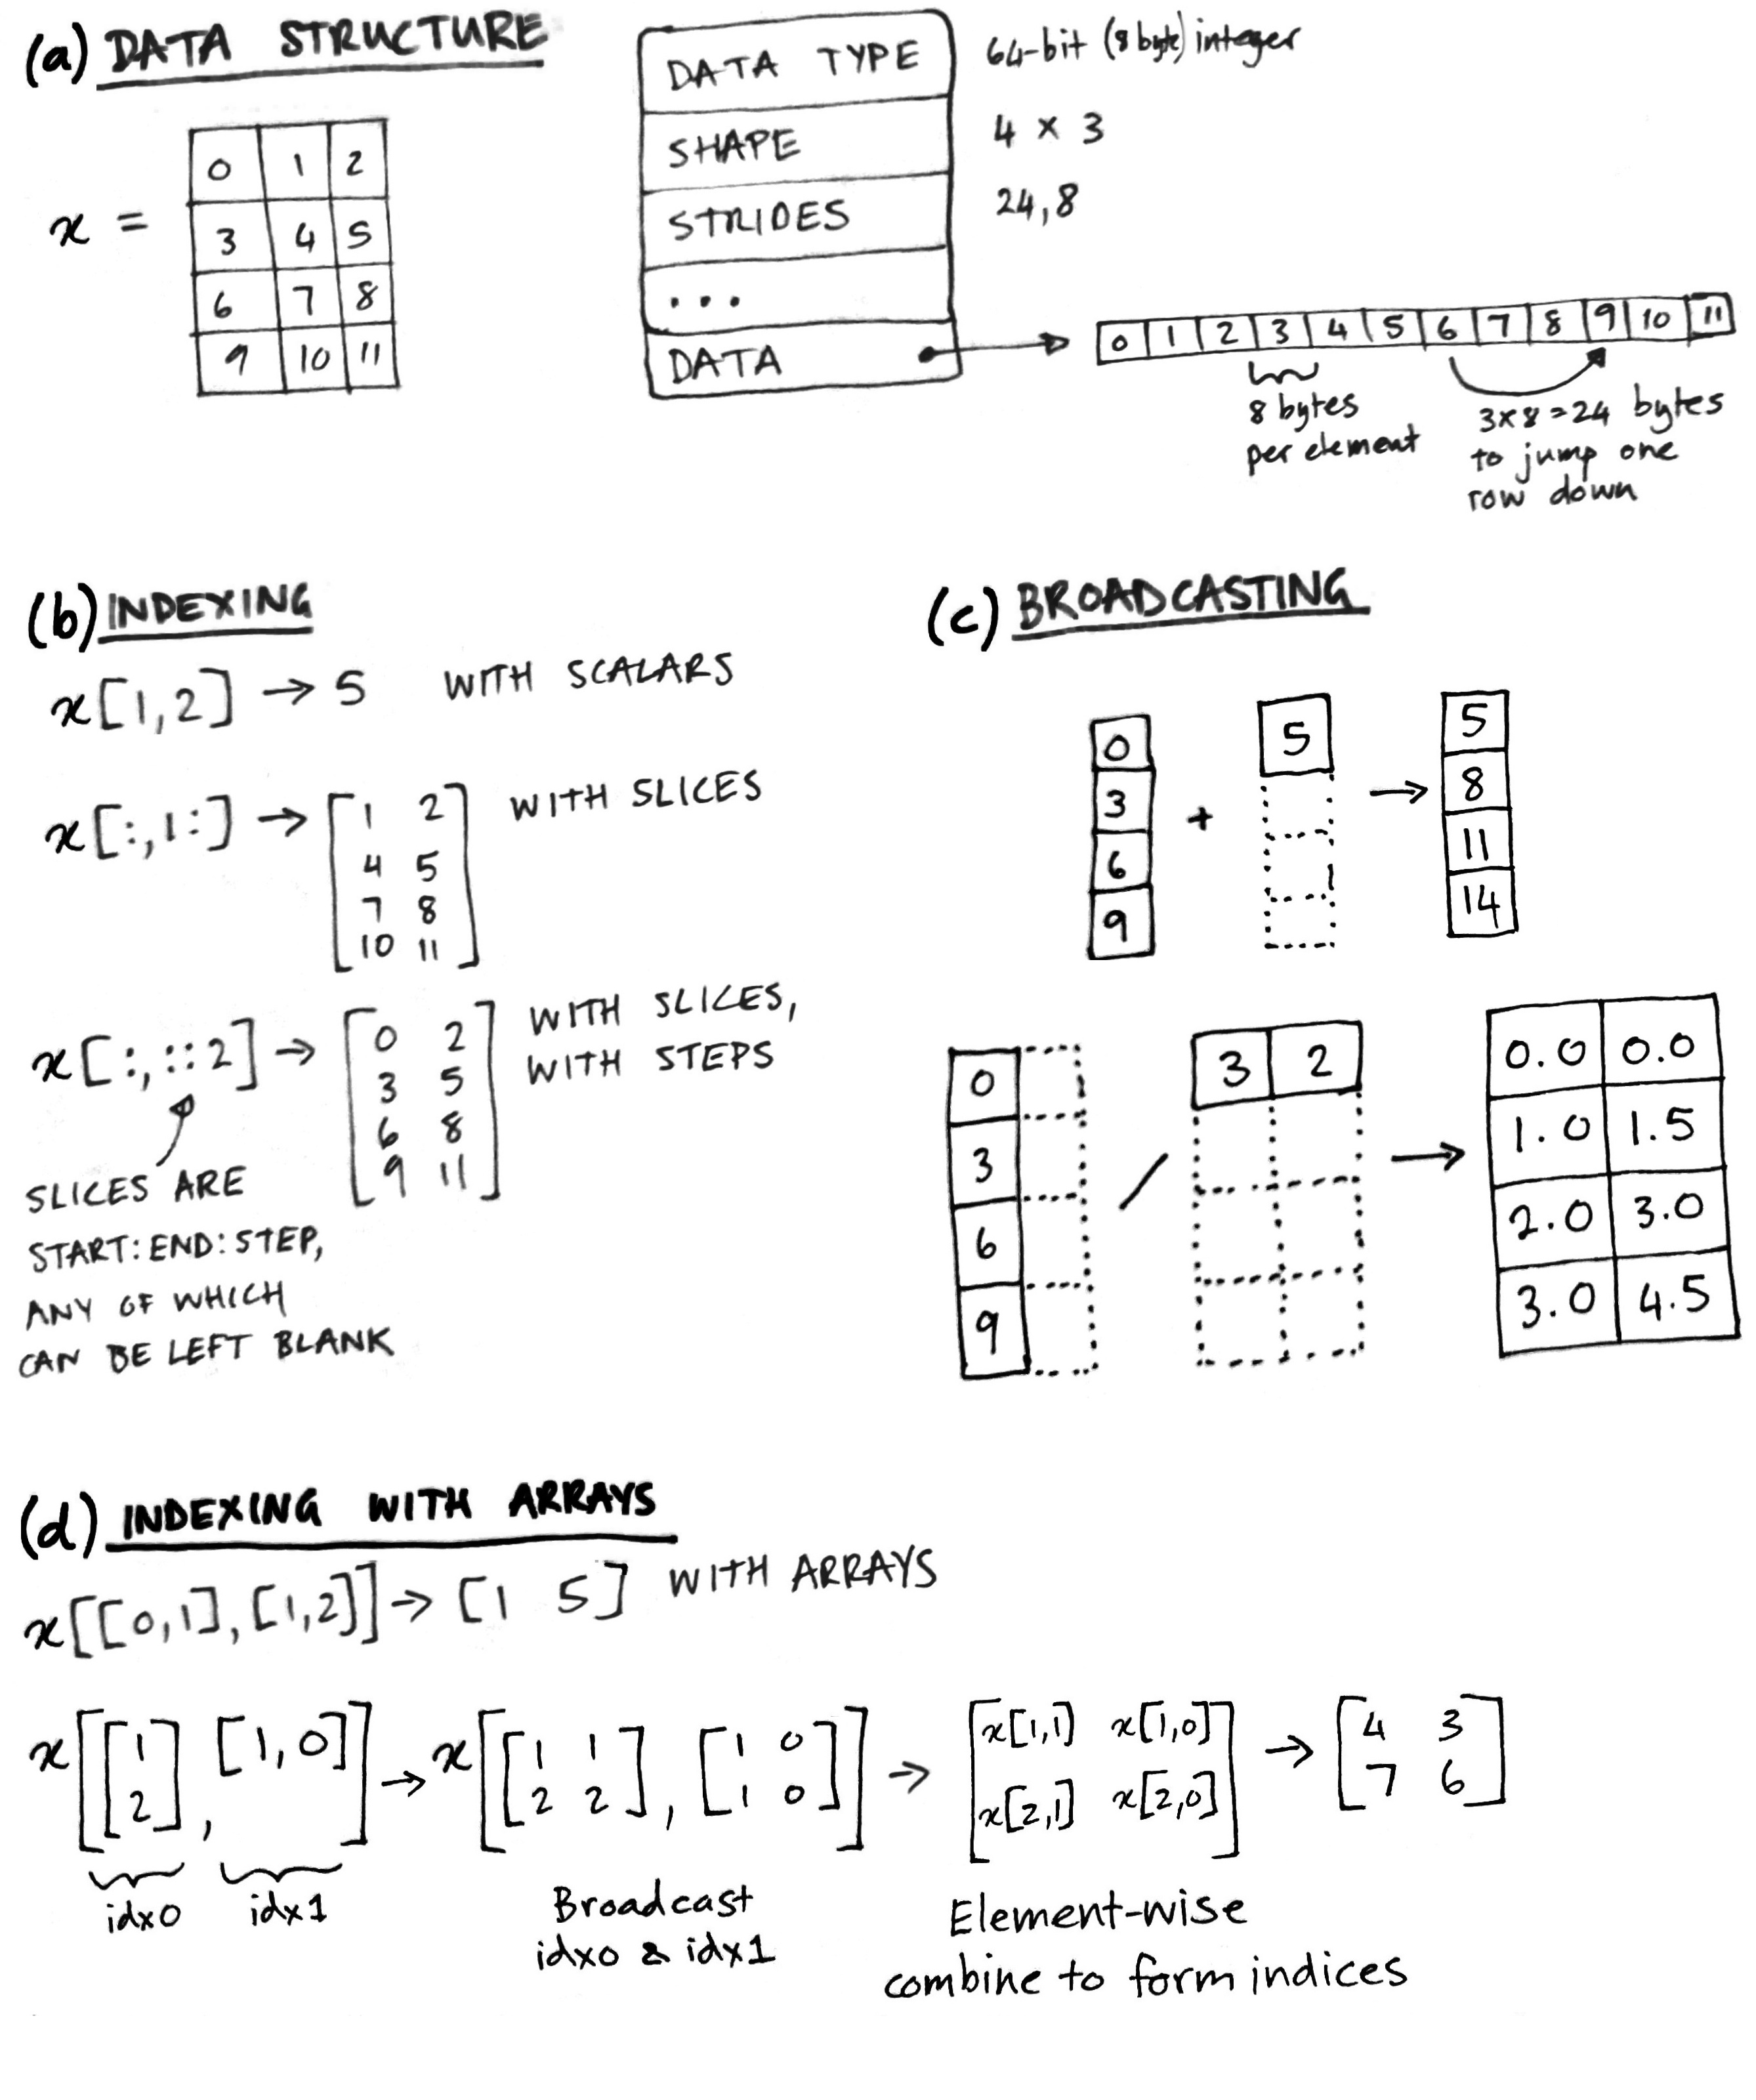 (a) DATA STRUCTURE
x =
0 1 2
3 4 5
6 7 8
9 10 11
DATA TYPE 64-bit (8 byte) integer
SHAPE 4 × 3
STRIDES 24,8
...
DATA
0 1 2 3 4 5 6 7 8 9 10 11
8 bytes
per element
3×8=24 bytes
to jump one
row down
(b) INDEXING
x[1,2] → 5 WITH SCALARS
x[:,1:] → [1 2 WITH SLICES
4 5
7 8
10 11]
x[:,::2] → [0 2 WITH SLICES,
3 5 WITH STEPS
6 8
9 11]
SLICES ARE
START:END:STEP,
ANY OF WHICH
CAN BE LEFT BLANK
(c) BROADCASTING
0 + 5 → 5
3 8
6 11
9 14
0 / 3 2 → 0.0 0.0
3 1.0 1.5
6 2.0 3.0
9 3.0 4.5
(d) INDEXING WITH ARRAYS
x[[0,1],[1,2]] → [1 5] WITH ARRAYS
x[[1 , [1,0]] → x[[1 1 , [1 0 → [x[1,1] x[1,0] → [4 3
2] 2 2] 1 0]] x[2,1] x[2,0]] 7 6]
idx0 idx1
Broadcast
idx0 & idx1
Element-wise
combine to form indices